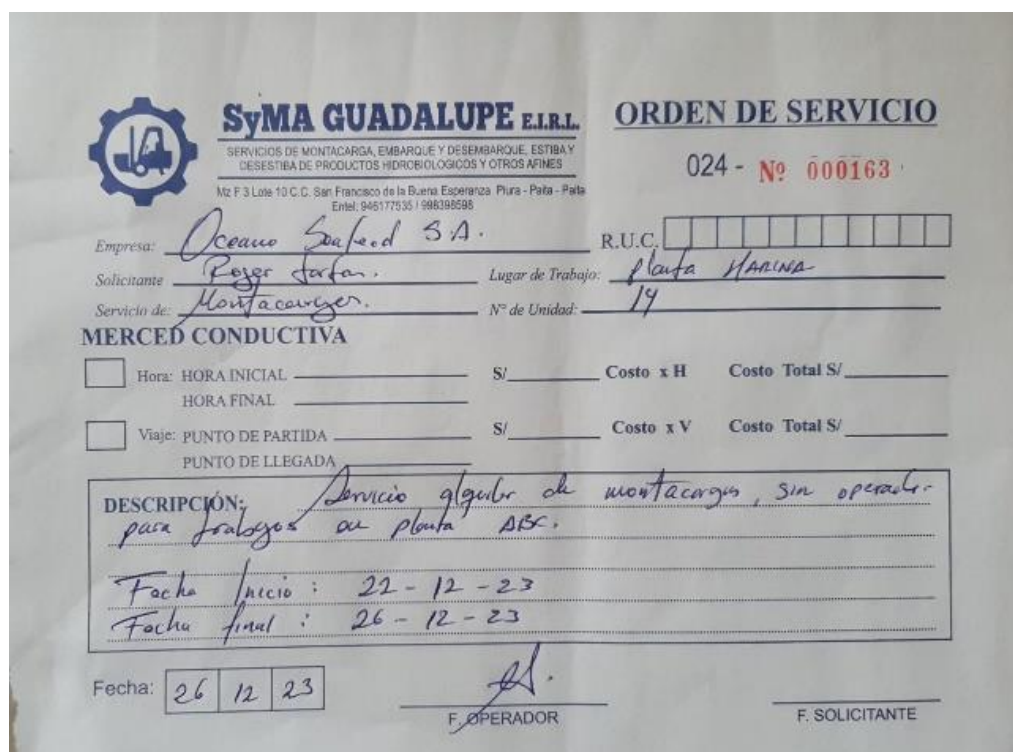 SyMA GUADALUPE E.I.R.L.
SERVICIOS DE MONTACARGA, EMBARQUE Y DESEMBARQUE, ESTIBA Y
DESESTIBA DE PRODUCTOS HIDROBIOLOGICOS Y OTROS AFINES
Mz F 3 Lote 10 C.C. San Francisco de la Buena Esperanza Piura - Paita - Paita
Entel: 946177535 / 998398598
ORDEN DE SERVICIO
024 - Nº 000163
Empresa: Oceano Seafood S.A. R.U.C.
Solicitante Roger Farfan. Lugar de Trabajo: Planta HARINA
Servicio de: Montacargas. Nº de Unidad: 14
MERCED CONDUCTIVA
Hora: HORA INICIAL S/ Costo x H Costo Total S/
HORA FINAL
Viaje: PUNTO DE PARTIDA S/ Costo x V Costo Total S/
PUNTO DE LLEGADA
DESCRIPCIÓN: Servicio alquiler de montacargas, sin operador
para trabajos en planta ABC.
Fecha Inicio : 22 - 12 - 23
Fecha final : 26 - 12 - 23
Fecha: 26 12 23
F. OPERADOR
F. SOLICITANTE